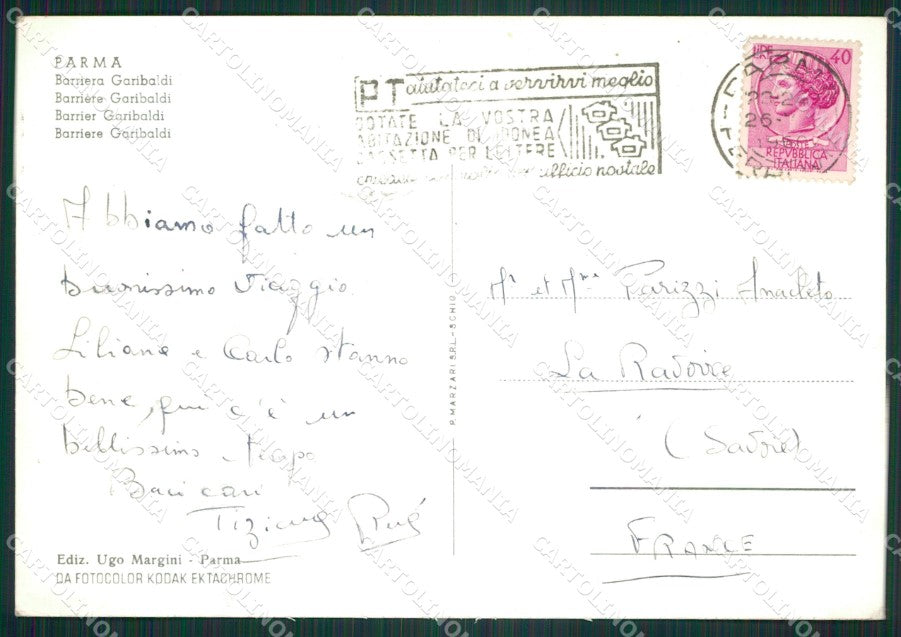 PARMA
Barriera Garibaldi
Barrière Garibaldi
Barrier Garibaldi
Barriere Garibaldi
PT aiutateci a servirvi meglio
DOTATE LA VOSTRA
ABITAZIONE DI IDONEA
CASSETTA PER LETTERE
ufficio postale
LIRE 40
POSTE
REPVBBLICA
ITALIANA
Abbiamo fatto un
buonissimo viaggio.
Liliane e Carlo stanno
bene, qui c'è un
bellissimo tempo
Baci cari
Tiziana
Mr et Mme Parizzi Anacleto
La Ravoire
(Savoie)
FRANCE
P. MARZARI S.R.L. - SCHIO
Ediz. Ugo Margini - Parma
DA FOTOCOLOR KODAK EKTACHROME
CARTOLINOMANIA